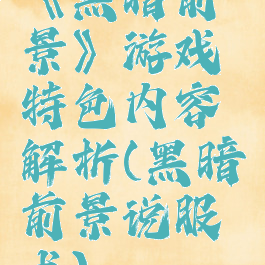 《黑暗前
景》游戏
特色内容
解析(黑暗
前景说服
术)